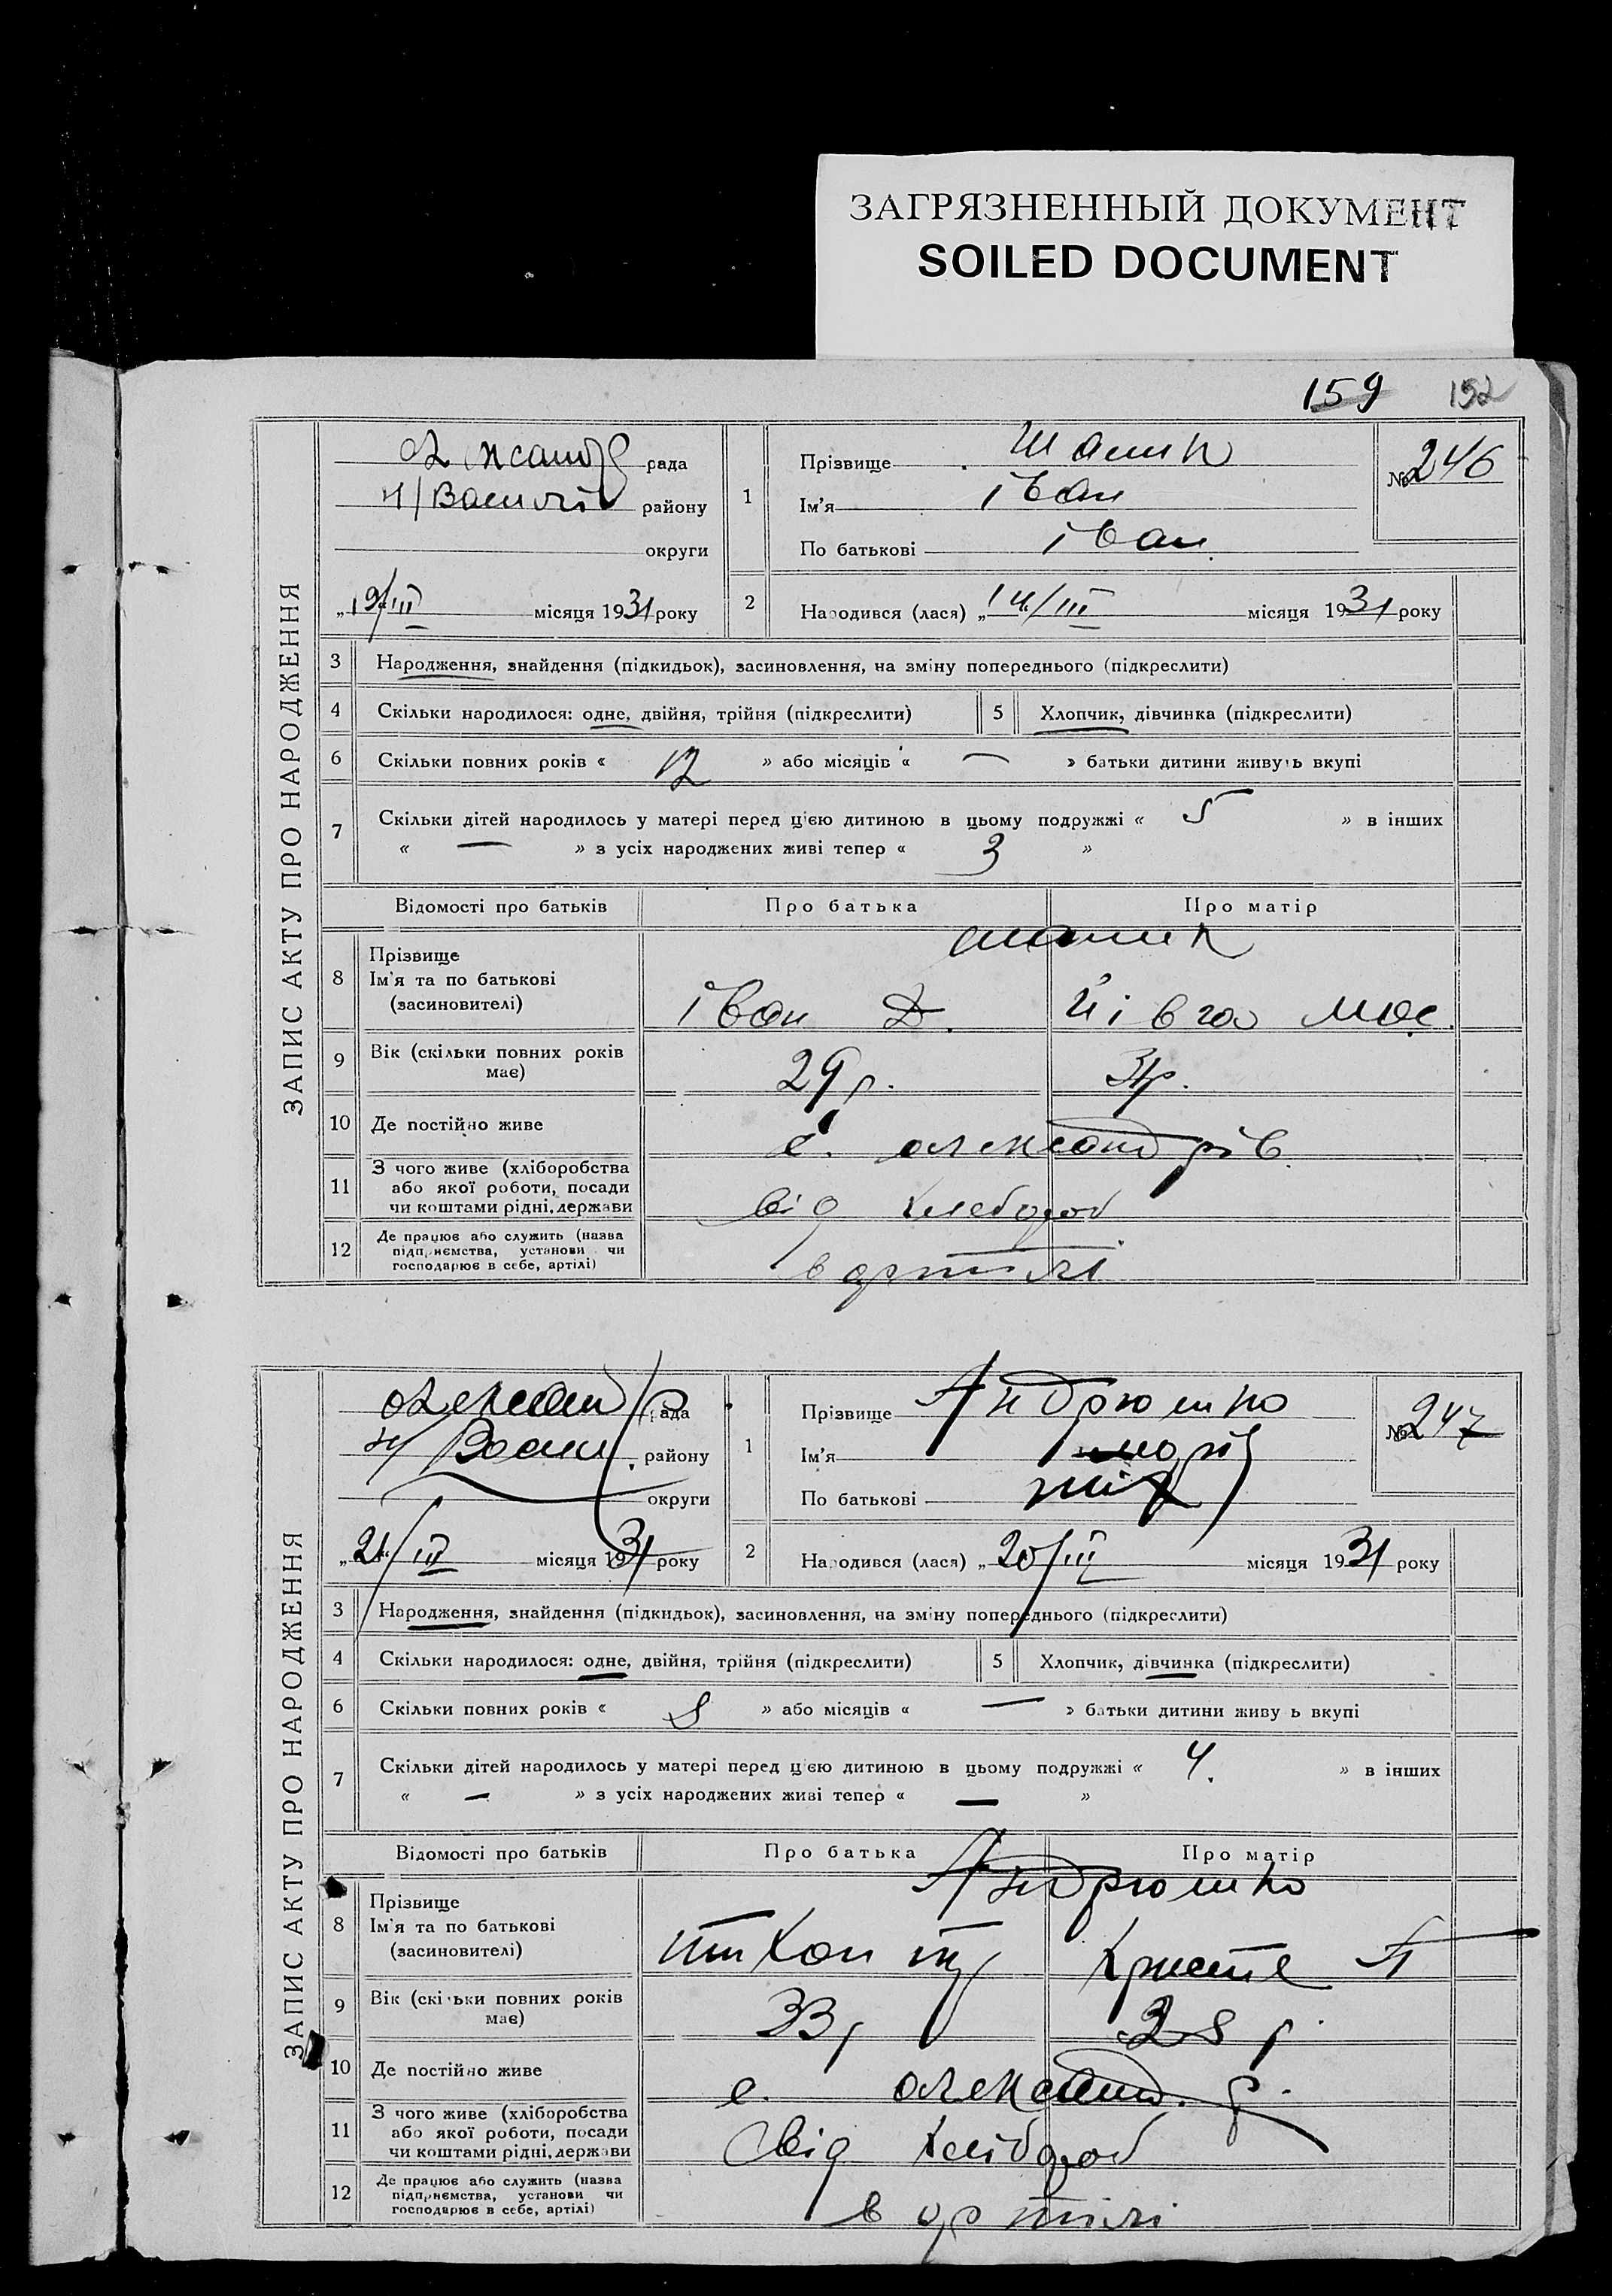 ЗАГРЯЗНЕННЫЙ ДОКУМЕНТ
SOILED DOCUMENT
159 152
ЗАПИС АКТУ ПРО НАРОДЖЕННЯ
рада
района
округи
„19/III місяця 1931 року
1
Прізвище Шашк
Ім'я іван
По батькові іван.
№ 246
2 Народився (лася) „14/III місяця 1931 року
3 Народження, знайдення (підкидьок), засиновлення, на зміну попереднього (підкреслити)
4 Скільки народилося: одне, двійня, трійня (підкреслити)
5 Хлопчик, дівчинка (підкреслити)
6 Скільки повних років « 12 » або місяців « — » батьки дитини живуть вкупі
7 Скільки дітей народилось у матері перед цією дитиною в цьому подружжі « 5 » в інших
« — » з усіх народжених живі тепер « 3 »
Відомості про батьків Про батька Про матір
8 Прізвище
Ім'я та по батькові
(засиновителі)
іван Д.
9 Вік (скільки повних років має)
29 р. 31р.
10 Де постійно живе
с. олександрів.
11 З чого живе (хліборобства
або якої роботи, посади
чи коштами рідні, держави
від хлебороб
12 Де працює або служить (назва
підприємства, установи чи
господарює в себе, артілі)
в артілі
ЗАПИС АКТУ ПРО НАРОДЖЕННЯ
рада
н/Васил. району
округи
„21/III місяця 1931 року
1
Прізвище Андрюшко
Ім'я марія
По батькові тих
№ 247
2 Народився (лася) „20/III місяця 1931 року
3 Народження, знайдення (підкидьок), засиновлення, на зміну попереднього (підкреслити)
4 Скільки народилося: одне, двійня, трійня (підкреслити)
5 Хлопчик, дівчинка (підкреслити)
6 Скільки повних років « 8 » або місяців « — » батьки дитини живу ь вкупі
7 Скільки дітей народилось у матері перед цією дитиною в цьому подружжі « 4. » в інших
« — » з усіх народжених живі тепер « — »
Відомості про батьків Про батька Про матір
Андрюшко
8 Прізвище
Ім'я та по батькові
(засиновителі)
тихон Христе А
9 Вік (скільки повних років має)
33р 28 р.
10 Де постійно живе
с. олександ. р.
11 З чого живе (хліборобства
або якої роботи, посади
чи коштами рідні, держави
від хлібороб
12 Де працює або служить (назва
підприємства, установи чи
господарює в себе, артілі)
в артілі